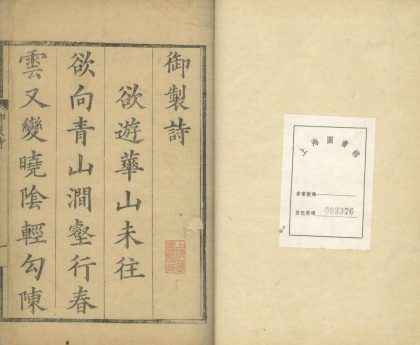 御製詩
欲遊華山未往
欲向青山澗壑行春
雲又變曉陰輕勾陳
御製詩
上海圖書館
索書號碼
登記號碼 903376